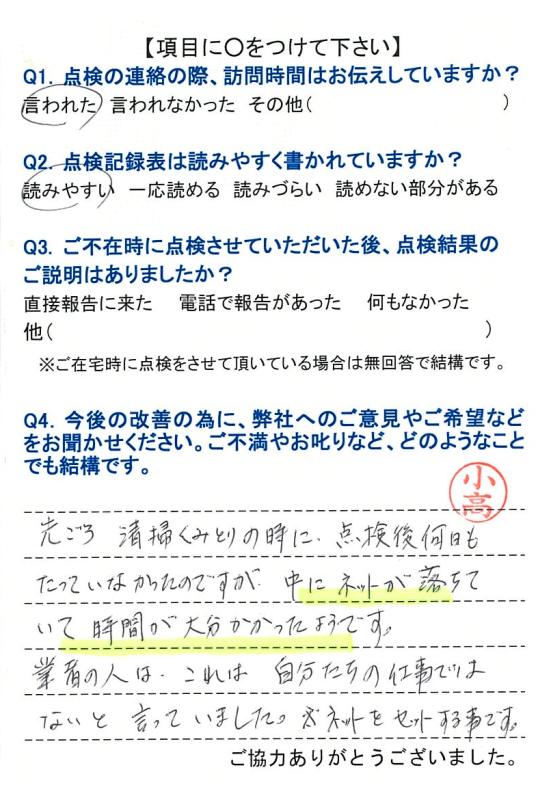 【項目に○をつけて下さい】
Q1. 点検の連絡の際、訪問時間はお伝えしていますか？
言われた 言われなかった その他( )
Q2. 点検記録表は読みやすく書かれていますか？
読みやすい 一応読める 読みづらい 読めない部分がある
Q3. ご不在時に点検させていただいた後、点検結果の
ご説明はありましたか？
直接報告に来た 電話で報告があった 何もなかった
他( )
※ご在宅時に点検をさせて頂いている場合は無回答で結構です。
Q4. 今後の改善の為に、弊社へのご意見やご希望など
をお聞かせください。ご不満やお叱りなど、どのようなこと
でも結構です。
小高
先ごろ 清掃くみとりの時に、点検後何日も
たっていなかったのですが、中にネットが落ちて
いて 時間が大分かかったようです。
業者の人は、これは 自分たちの仕事では
ないと 言っていました。※ネットをセットする事です。
ご協力ありがとうございました。